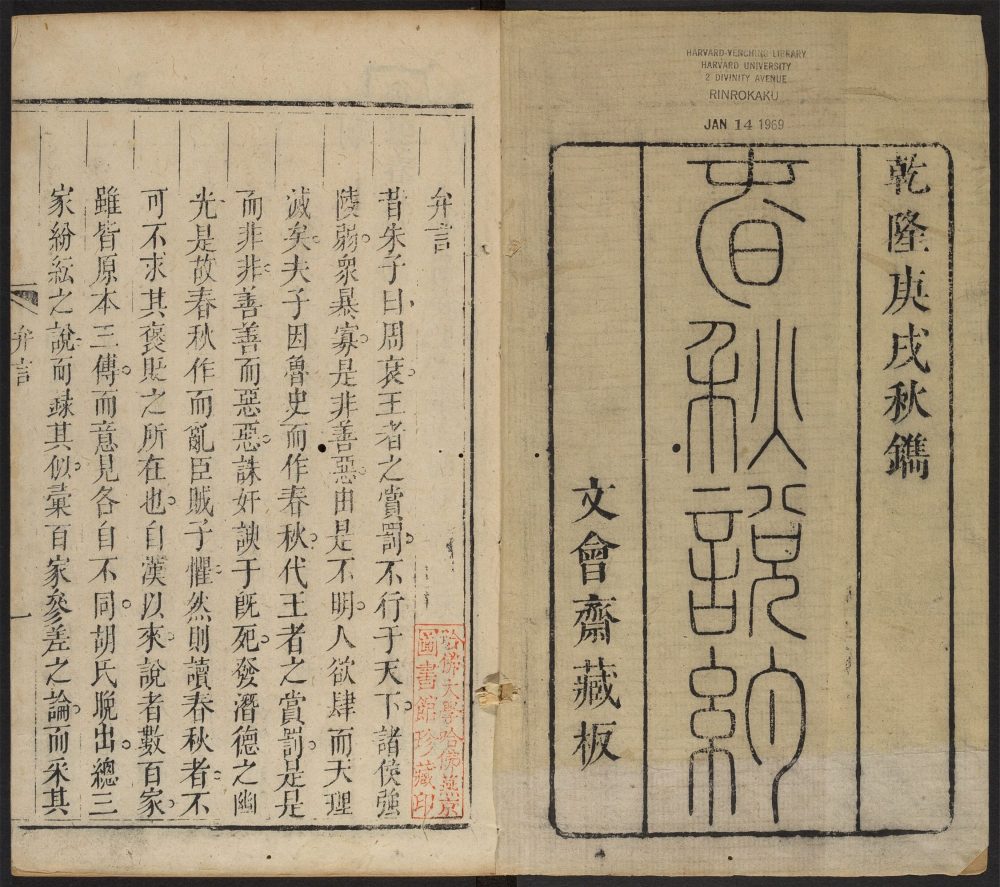 HARVARD-YENCHING LIBRARY
HARVARD UNIVERSITY
2 DIVINITY AVENUE
RINROKAKU
JAN 14 1969
乾隆庚戌秋鐫
春秋說約
文會齋藏板
哈佛大學哈佛燕京
圖書館珍藏印
弁言
昔朱子曰周衰。王者之賞罰不行于天下。諸侯強
陵弱。衆暴寡。是非善惡。由是不明。人欲肆而天理
滅矣。夫子因魯史而作春秋。代王者之賞罰。是是
而非非。善善而惡惡。誅奸諛于既死。發潛德之幽
光。是故春秋作而亂臣賊子懼。然則讀春秋者。不
可不求其褒貶之所在也。自漢以來。說者數百家。
雖皆原本三傳。而意見各自不同。胡氏晚出。總三
家紛紜之說。而錄其似。彙百家參差之論。而采其
弁言
一